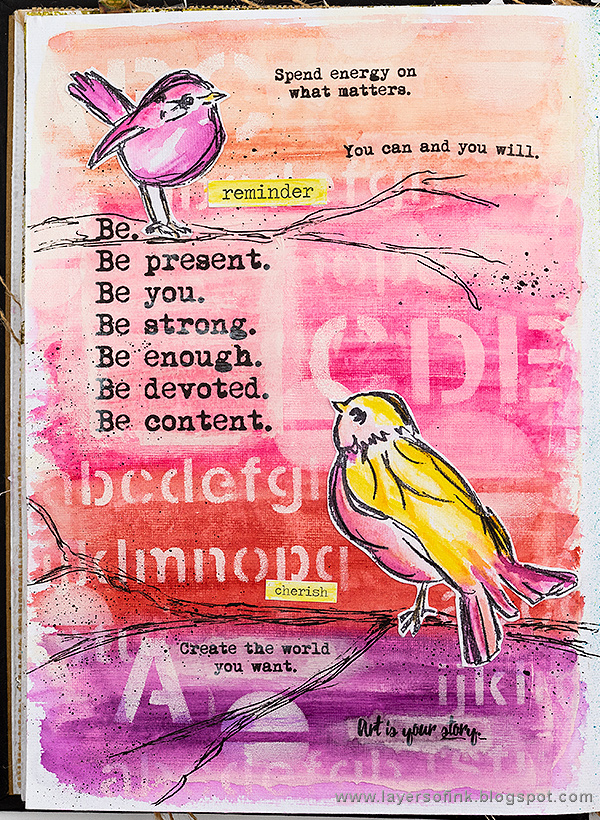 Spend energy on
what matters.
You can and you will.
reminder
Be.
Be present.
Be you.
Be strong.
Be enough.
Be devoted.
Be content.
CDE
abcdefgh
jklmnopq
cherish
Create the world
you want.
A
ijkl
Art is your story.
www.layersofink.blogspot.com